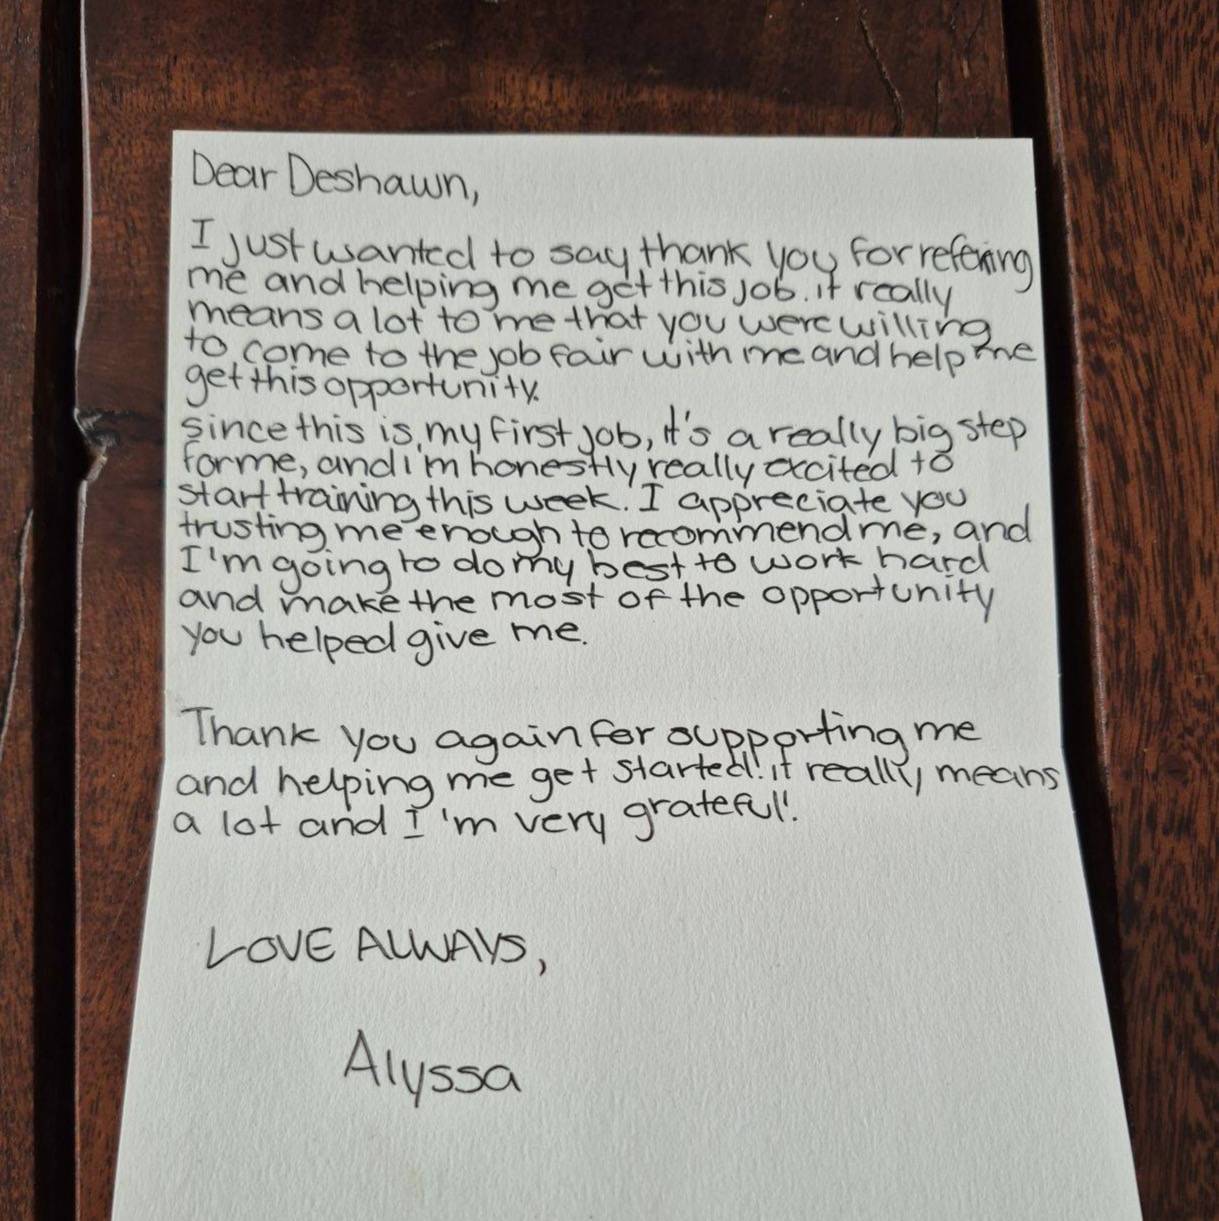 Dear Deshawn,
I just wanted to say thank you for refering
me and helping me get this job. it really
means a lot to me that you were willing
to come to the job fair with me and help me
get this opportunity.
since this is my first job, it's a really big step
for me, and i'm honestly really excited to
start training this week. I appreciate you
trusting me enough to recommend me, and
I'm going to do my best to work hard
and make the most of the opportunity
you helped give me.
Thank you again for supporting me
and helping me get started! it really means
a lot and I'm very grateful!
LOVE ALWAYS,
Alyssa